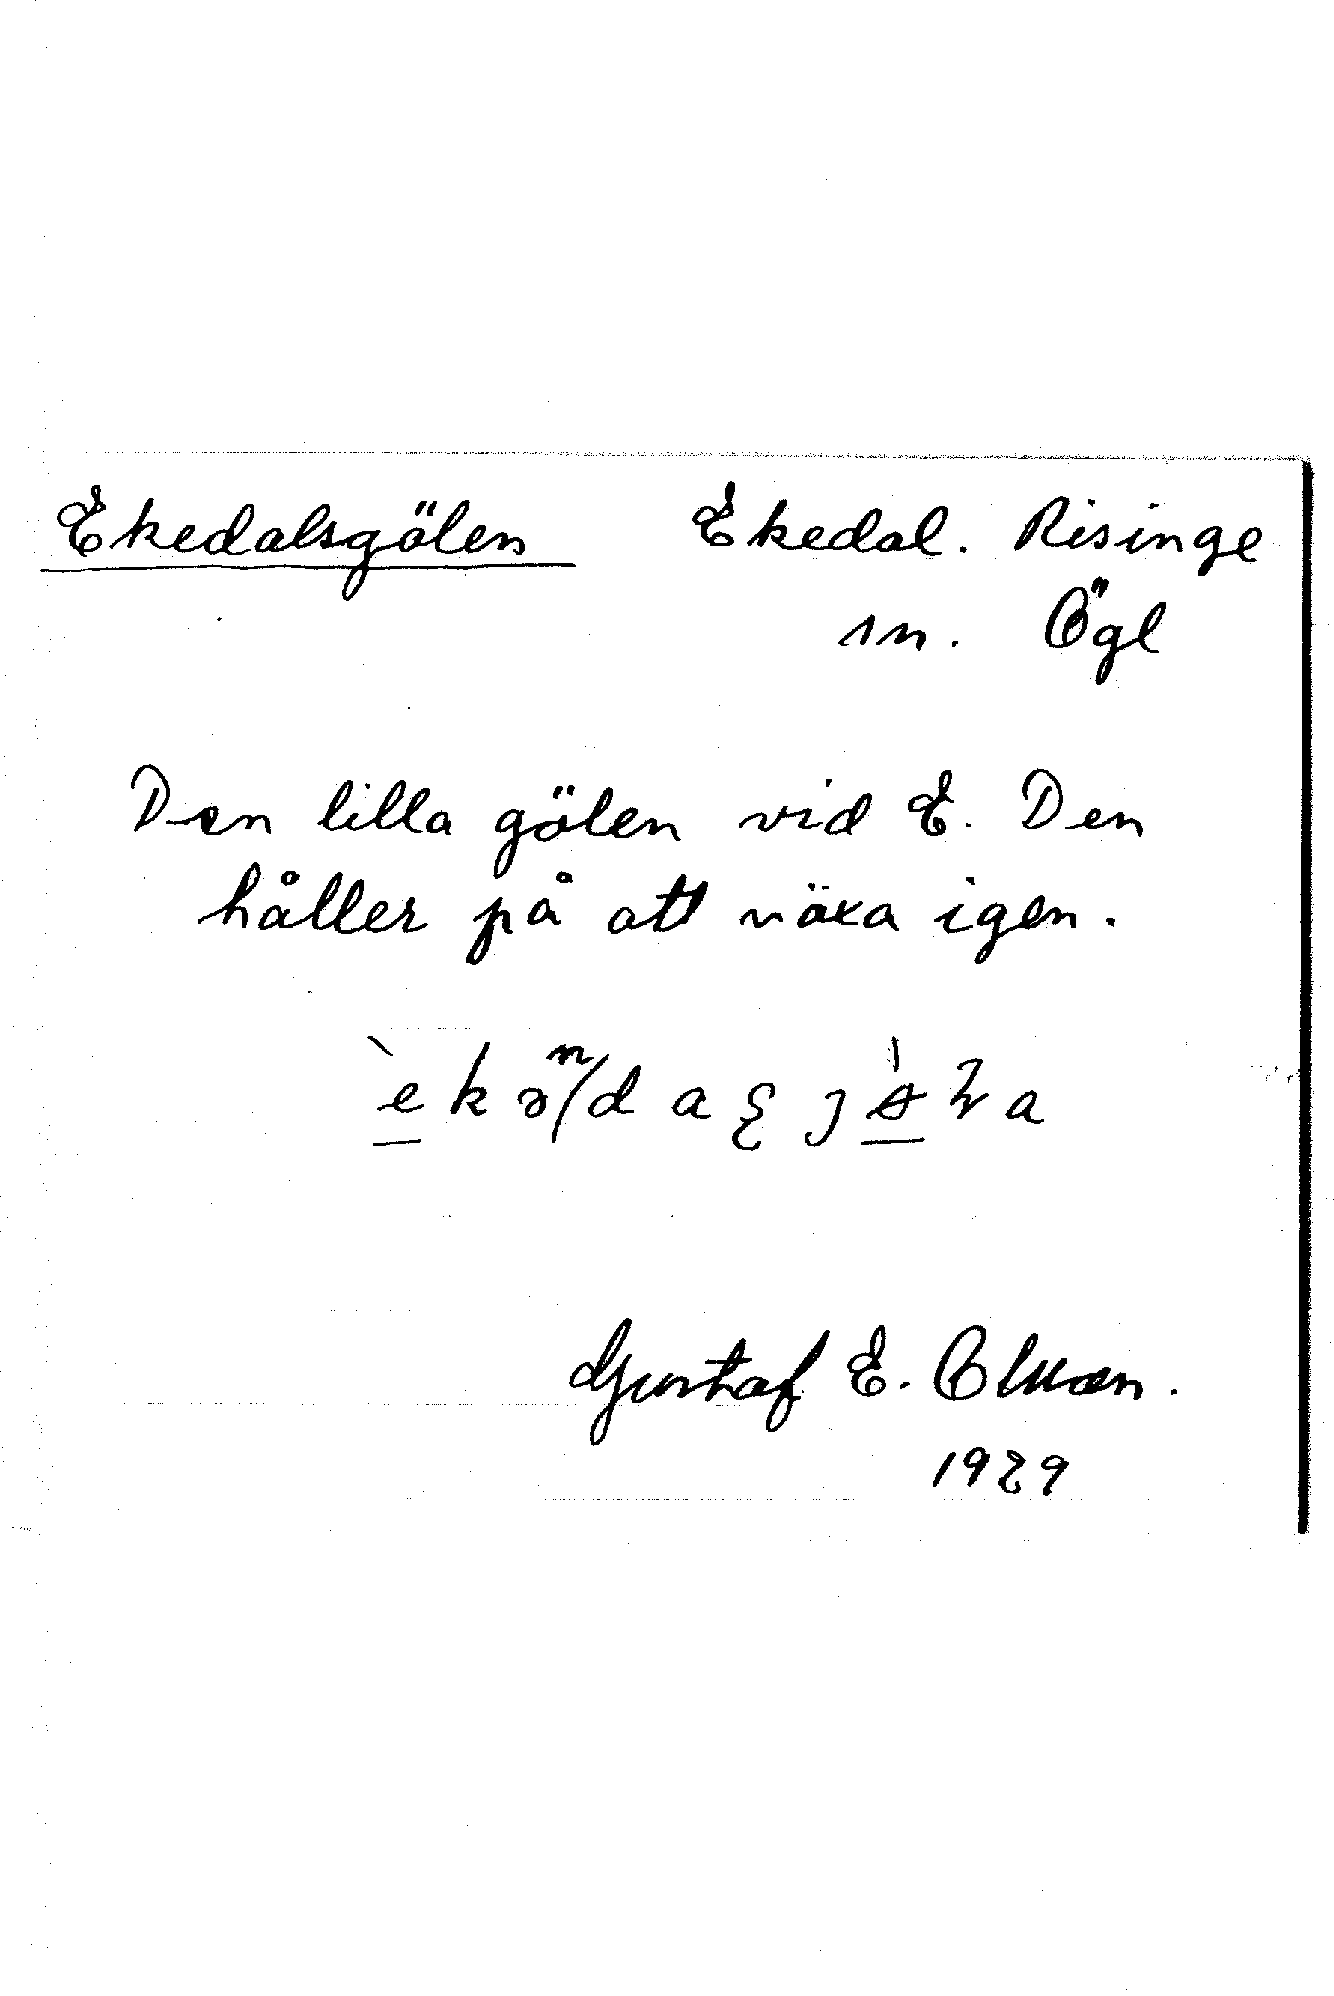 Ekedalsgölen Ekedal. Risinge
sn. Ögl
Den lilla gölen vid E. Den
håller på att växa igen.
Gustaf E. Olsson.
1929